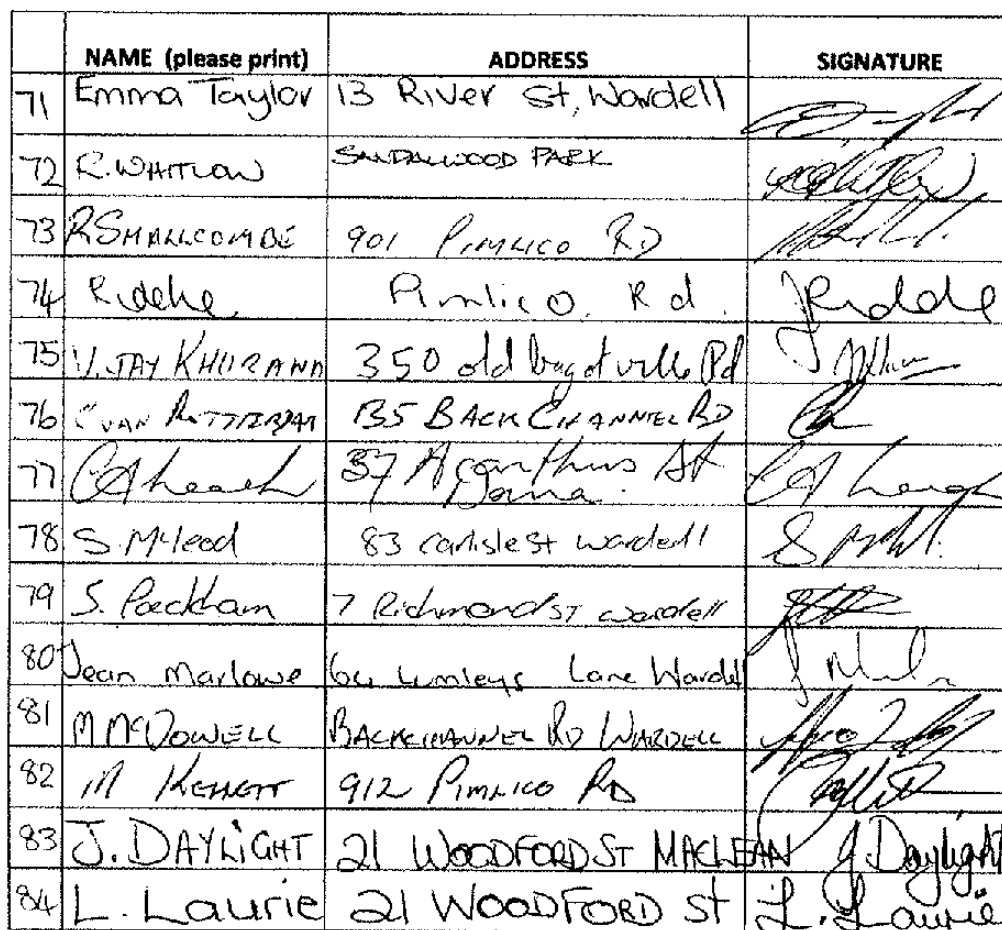 NAME (please print) ADDRESS SIGNATURE
71 Emma Taylor 13 River St, Wardell
72 R. WHITLOW SANDALWOOD PARK
73 R SMALLCOMBE 901 PIMLICO RD
74 Pimlico Rd
75 VIJAY KHURANA 350 old bagotville Rd
76 C VAN ROTTERDAM 135 BACK CHANNEL RD
77 CA Leach 37 Acanthus St
78 S. McLeod 83 carlisle st wardell
79 S. Packham 7 Richmond ST wardell
80 Jean Marlowe 64 Lumleys Lane Wardell
81 M McDOWELL BACKCHANNEL RD WARDELL
82 M 912 PIMLICO RD
83 J. DAYLIGHT 21 WOODFORD ST MACLEAN J. Daylight
84 L. Laurie 21 WOODFORD St L. Laurie